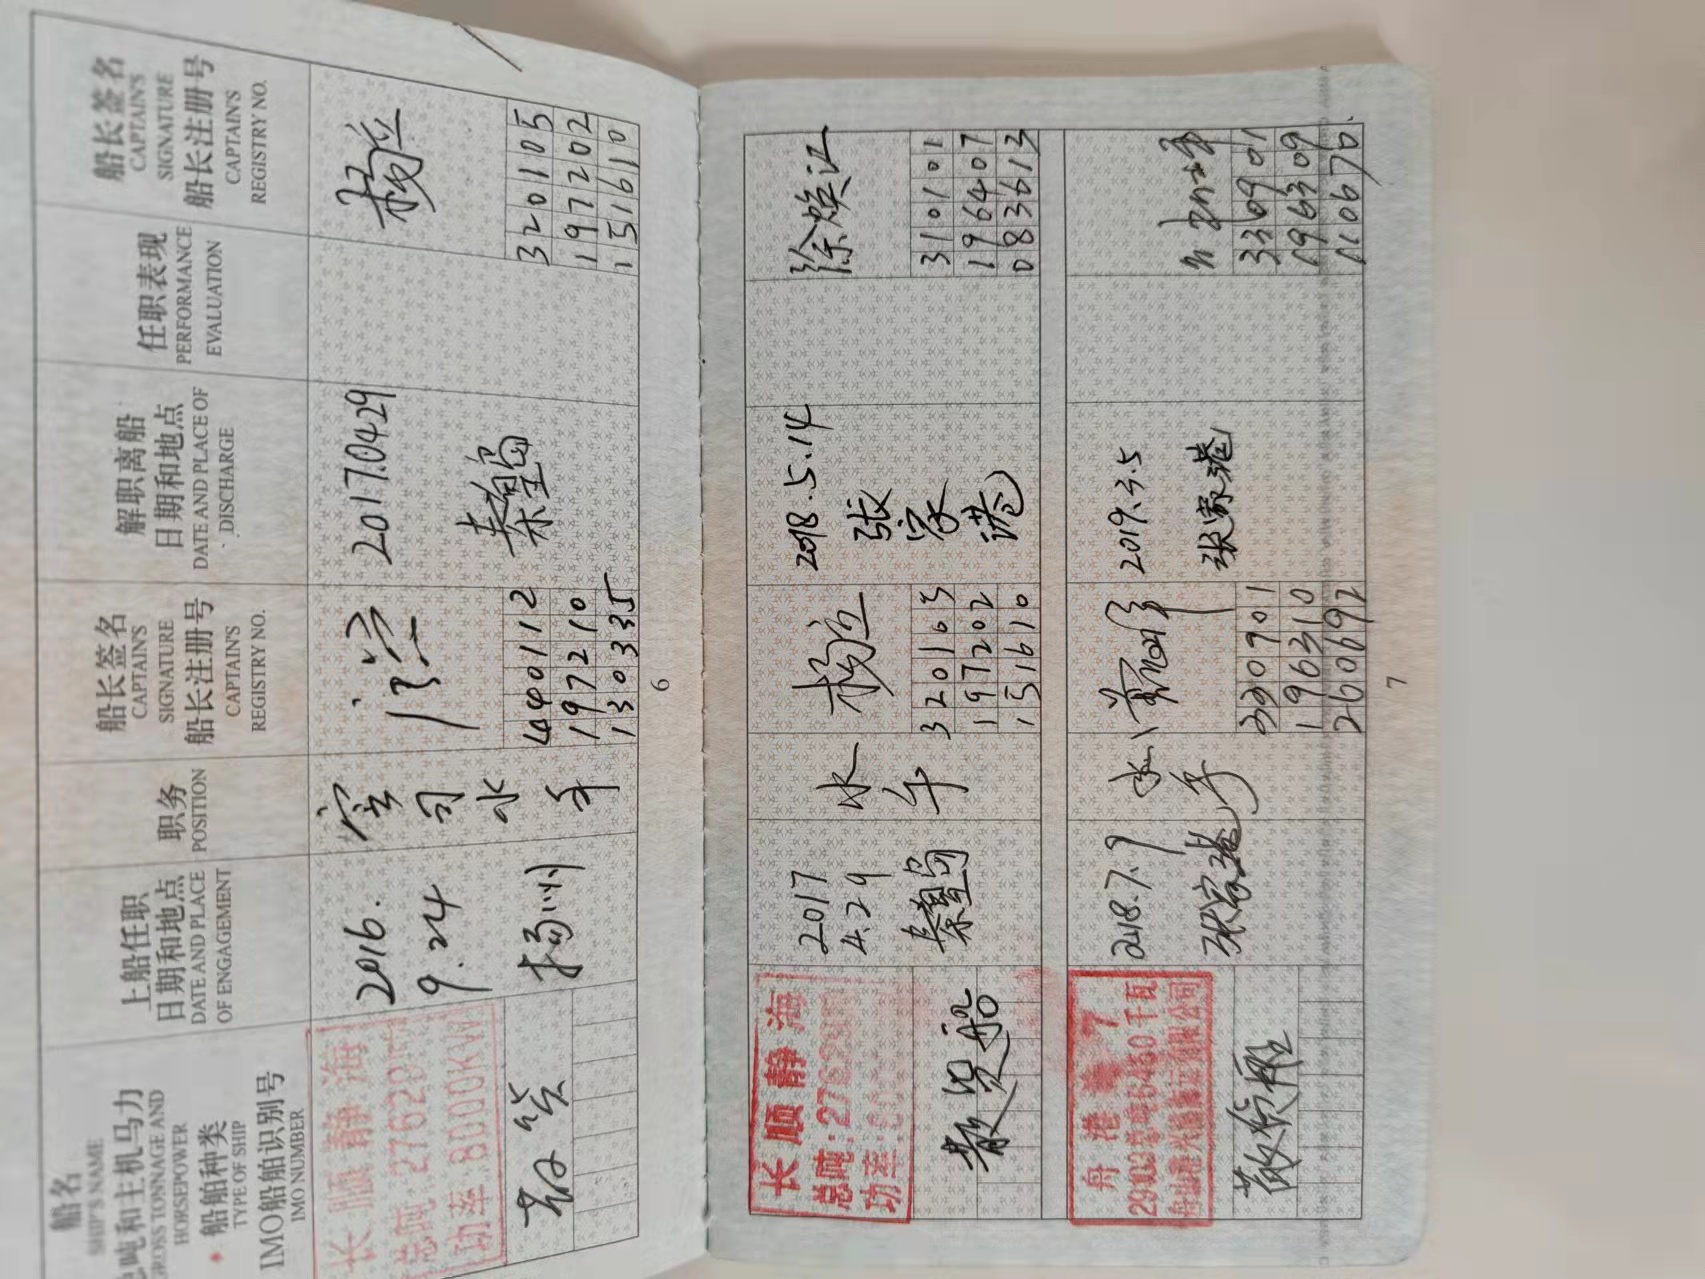 船名
SHIP'S NAME
总吨和主机马力
GROSS TONNAGE AND
HORSEPOWER
船舶种类
TYPE OF SHIP
IMO船舶识别号
IMO NUMBER
上船任职
日期和地点
DATE AND PLACE
OF ENGAGEMENT
职务
POSITION
船长签名
CAPTAIN'S
SIGNATURE
船长注册号
CAPTAIN'S
REGISTRY NO.
解职离船
日期和地点
DATE AND PLACE OF
DISCHARGE
任职表现
PERFORMANCE
EVALUATION
船长签名
CAPTAIN'S
SIGNATURE
船长注册号
CAPTAIN'S
REGISTRY NO.
长顺静海
总吨:27629吨
功率:8000KW
2016.
9.24
扬州
水
手
440112
197210
130335
2017.04.29
秦皇岛
320105
197202
151610
6
长顺静海
总吨:27629
功率:
散货船
2017
4.29
秦皇岛
水
手
320105
197202
151610
2018.5.14
张
家
港
徐焕江
310101
196407
083613
舟港 7
29102总吨6480千瓦
散货船
2018.7.9
张家港
水手
330901
196310
260692
2019.3.5
张家港
330901
196309
110670
7